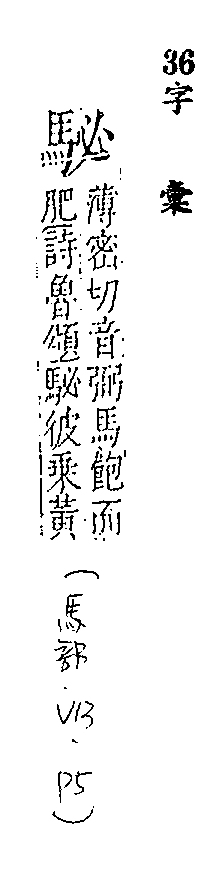 36
字彙
駜
薄密切音弼馬飽而
肥詩魯頌駜彼乘黃
(馬部.V13.P5)